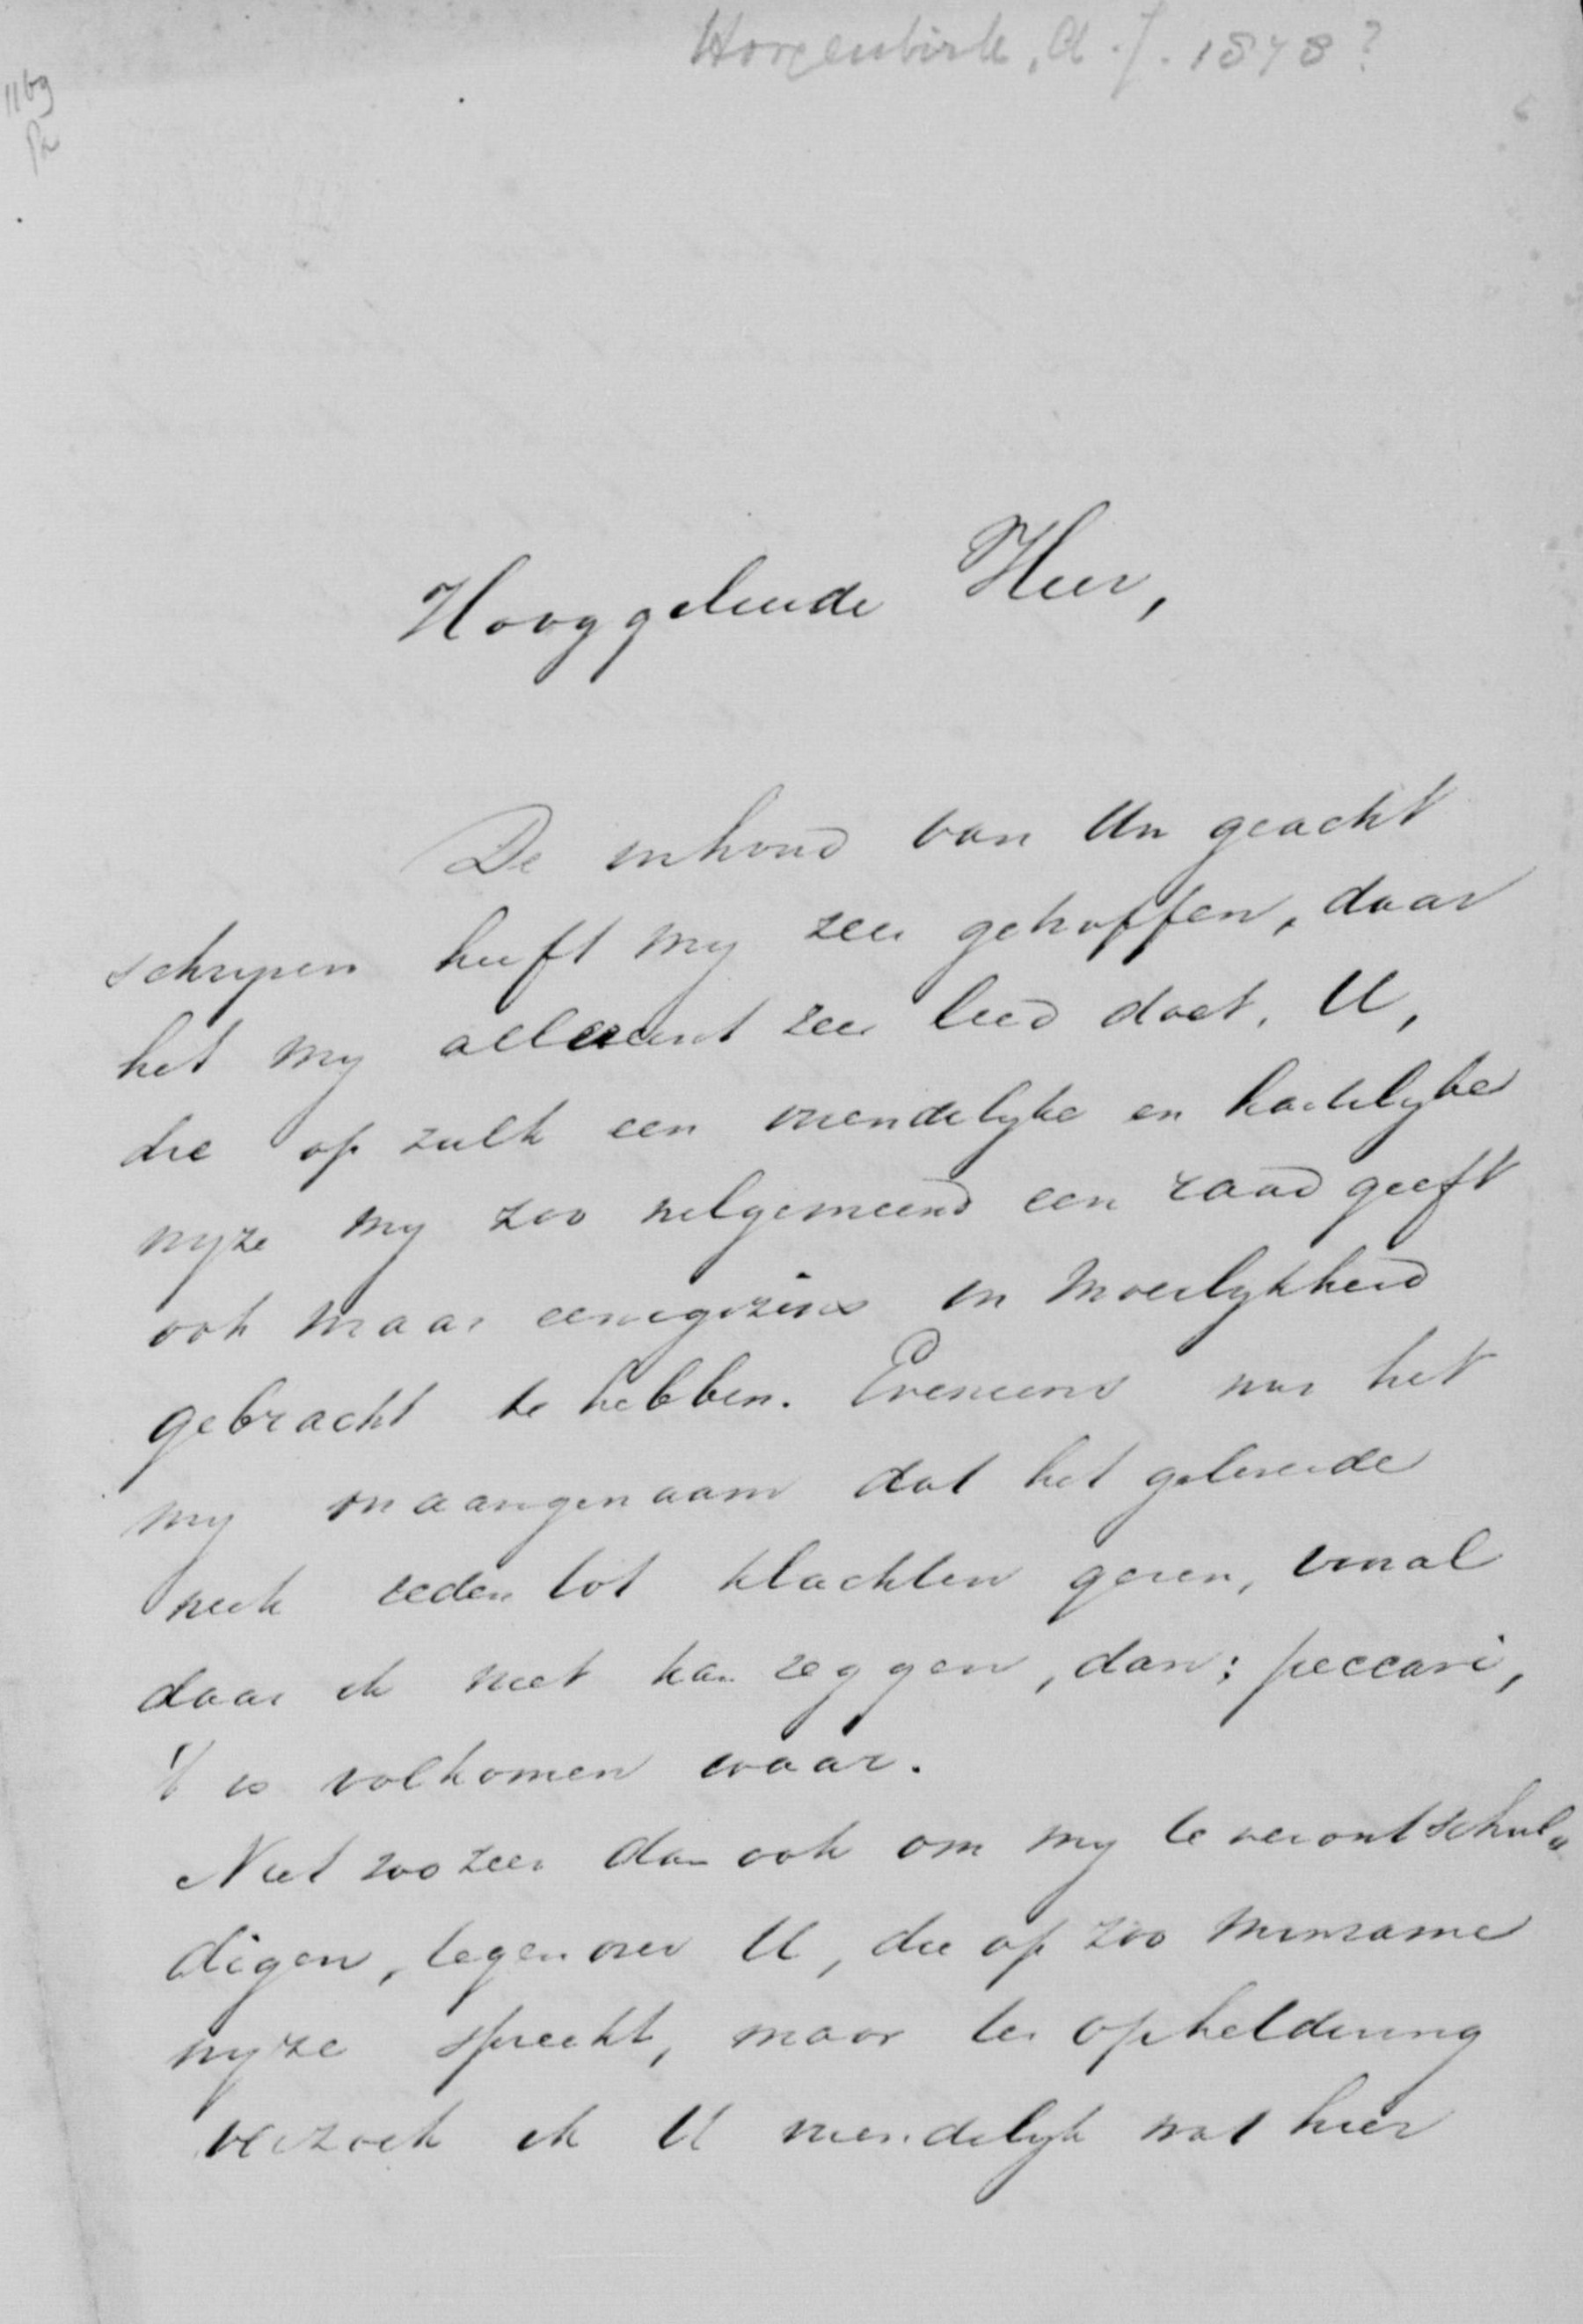 A. J. 1878?
Hooggeleerde Heer,
De inhoud van Uw geacht
schrijven heeft mij zeer getroffen, daar
het mij allereerst zeer leed doet, U,
die op zulk een vriendelijke en hartelijke
wijze mij zoo welgemeend een raad geeft
ook maar eenigzins in moeilijkheid
gebracht te hebben. Eveneens was het
mij onaangenaam dat het geleverde
werk reden tot klachten geven, vooral
daar ik niet kan zeggen, dan: peccavi,
't is volkomen waar.
Niet zoo zeer dan ook om mij te verontschul„
digen, tegenover U, die op zoo minzame
wijze spreekt, maar ter opheldering
verzoek ik U vriendelijk wat hier